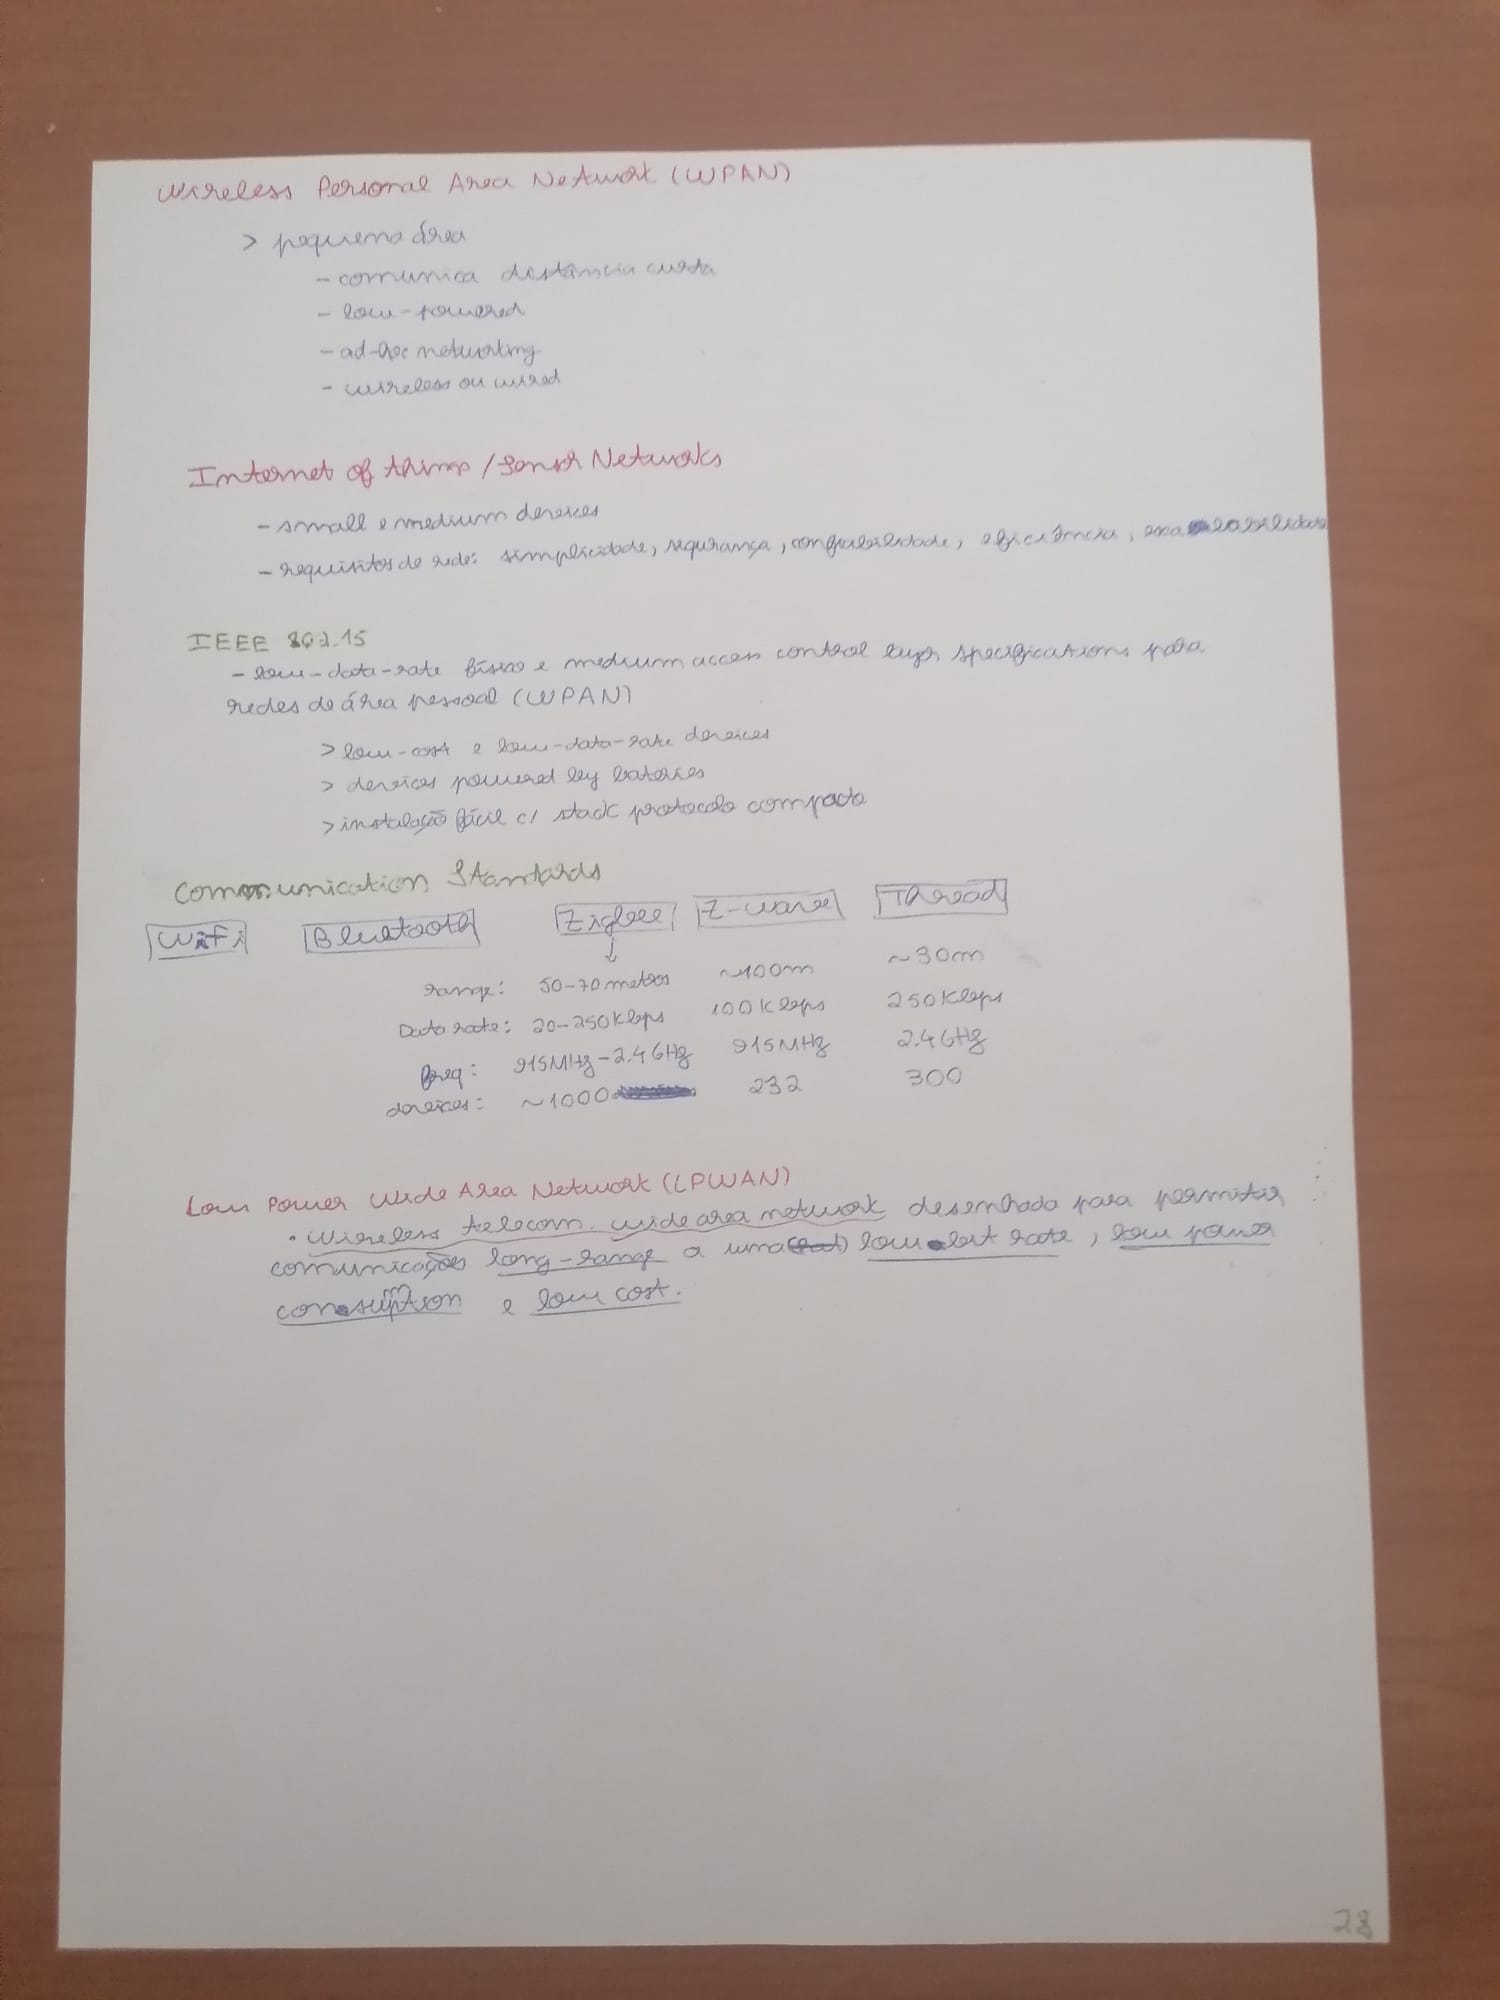 Wireless Personal Area Network (WPAN)
> pequena área
- comunica distância curta
- low-powered
- ad-hoc networking
- wireless ou wired
Internet of things / Sensor Networks
- small e medium devices
- requisitos de rede: simplicidade, segurança, confiabilidade, eficiência, escalabilidade
IEEE 802.15
- low-data-rate físico e medium access control layer specifications para
redes de área pessoal (WPAN)
> low-cost e low-data-rate devices
> devices powered by bateries
> instalação fácil c/ stack protocolo compacto
Communication Standards
WiFi Bluetooth Zigbee Z-wave Thread
↓
range: 50-70 metros ~100m ~30m
Data rate: 20-250Kbps 100Kbps 250Kbps
freq: 915MHz-2.4GHz 915MHz 2.4GHz
devices: ~1000 232 300
Low Power Wide Area Network (LPWAN)
• Wireless telecom. wide area network desenhada para permitir
comunicações long-range a uma low bit rate, low power
consumption e low cost.
28